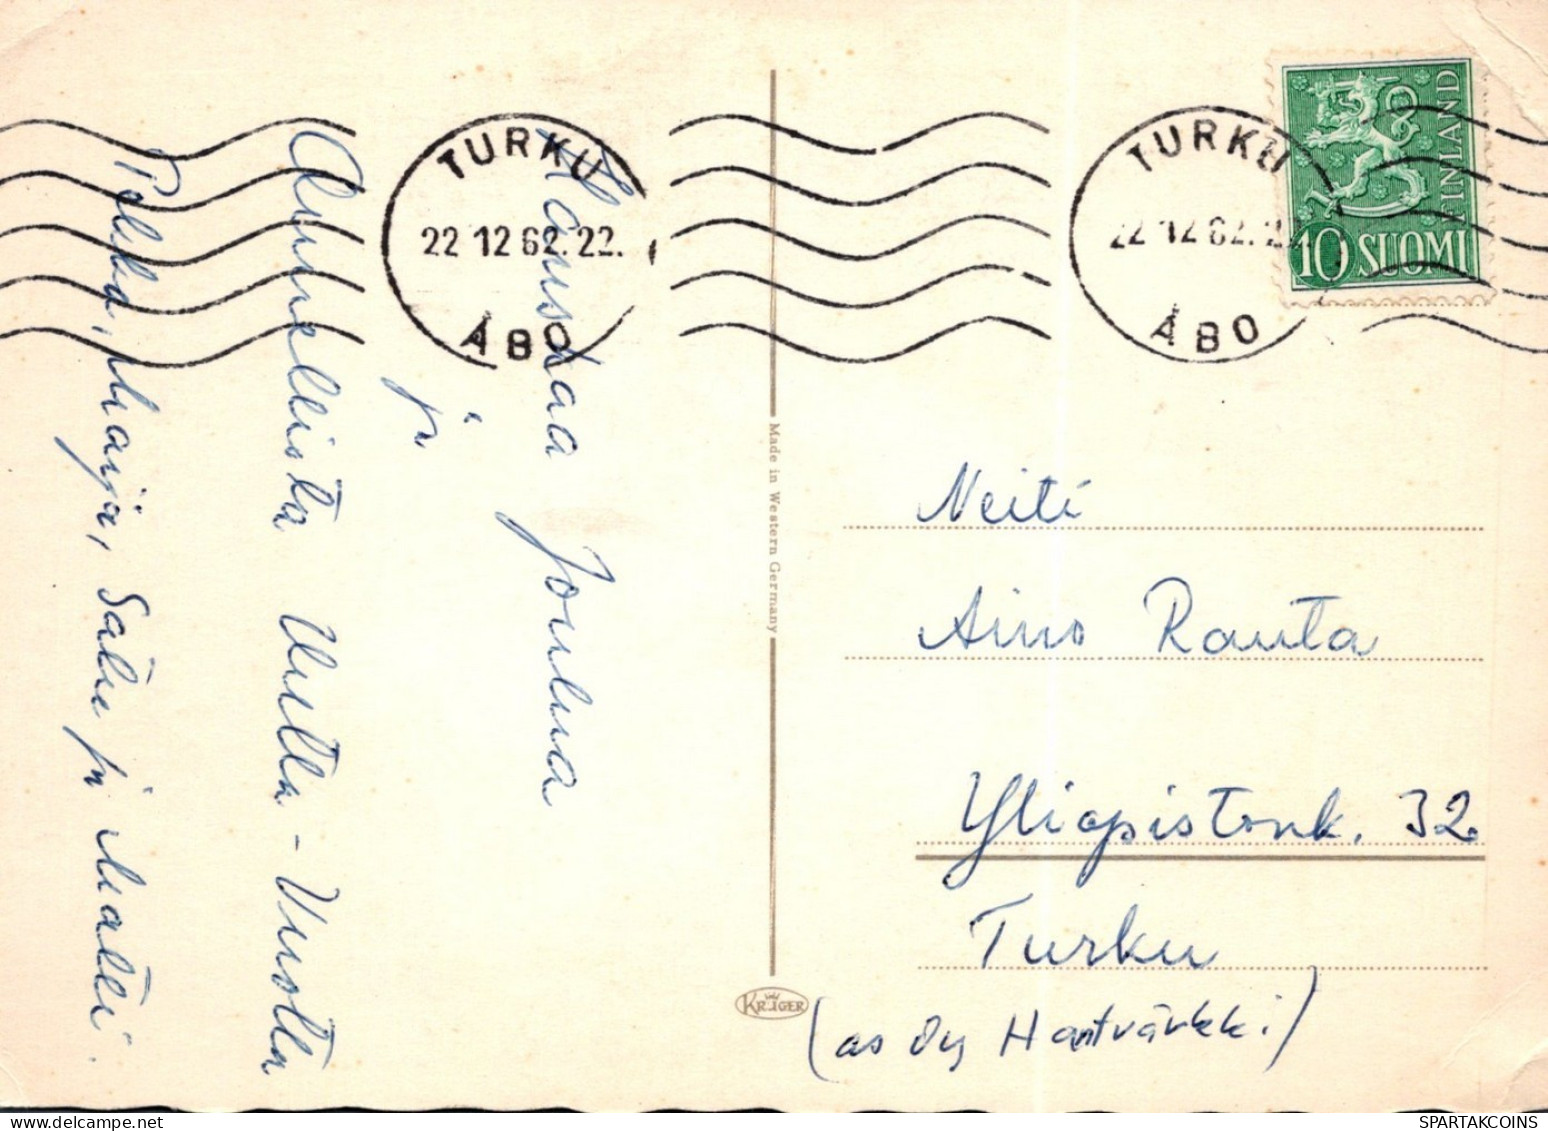 TURKU
22 12 62.22.
ÅBO
TURKU
22 12 62.22
ÅBO
FINLAND
10 SUOMI
Hauskaa Joulua
ja
Onnellista Uutta-Vuotta
Pekka, Maija, Satu ja Matti.
Made in Western Germany
KRÜGER
Neiti
Aino Rauta
Yliopistonk. 32
Turku
(as Oy Hantvärkki)
SPARTAKCOINS